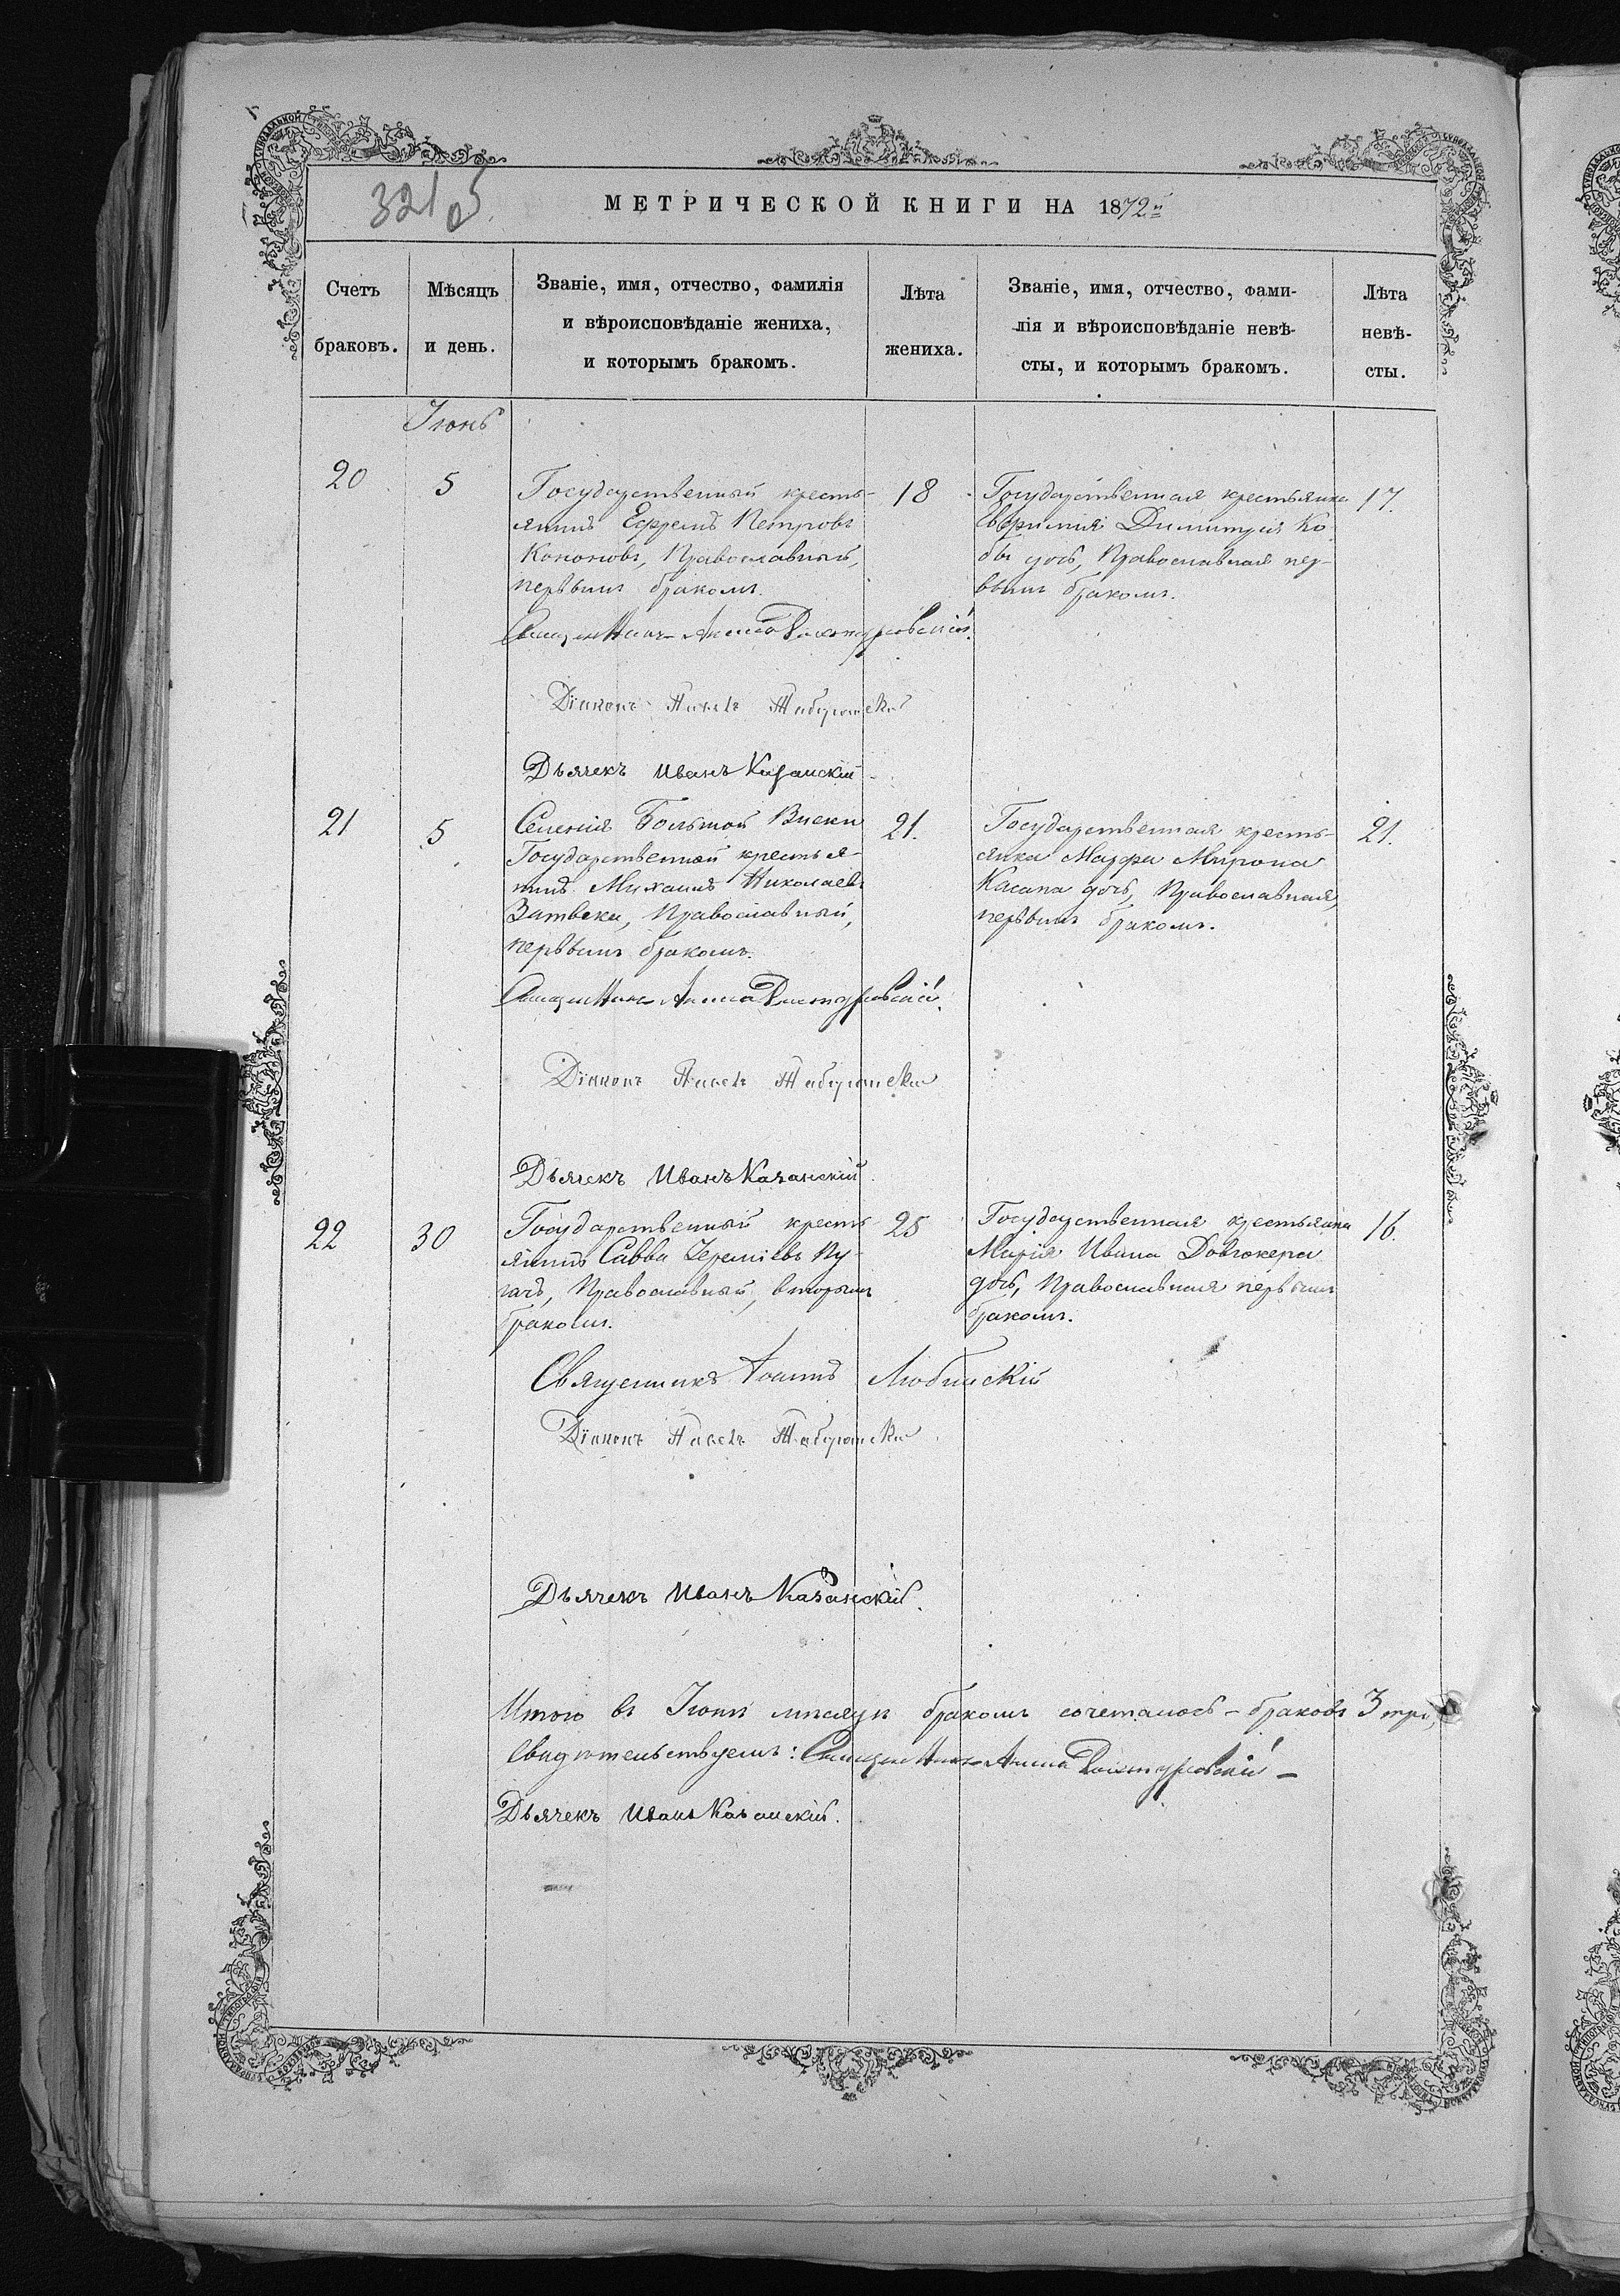 321об
МЕТРИЧЕСКОЙ КНИГИ НА 1872й
Счетъ
браковъ.
Мѣсяцъ
и день.
Званіе, имя, отчество, фамилія
и вѣроисповѣданіе жениха,
и которымъ бракомъ.
Лѣта
жениха.
Званіе, имя, отчество, фами-
лія и вѣроисповѣданіе невѣ-
сты, и которымъ бракомъ.
Лѣта
невѣ-
сты.
Іюнь
20
5
Государственный кресть-
янинъ Ефремъ Петровъ
Кононовъ, Православный,
первымъ бракомъ.
18
Государственная крестьянка
Евфимія Димитрія Ко-
бы дочь, Православная пер-
вымъ бракомъ.
17.
Священникъ
Діаконъ Павелъ
Дьячекъ Иванъ Казанскій
21
5
Селенія Большой Виски
Государственный крестья-
нинъ Михаилъ Николаевъ
Православный,
первымъ бракомъ.
21.
Государственная кресть-
янка Марфа Мирона
Касапа дочь, Православная,
первымъ бракомъ.
21.
Священникъ
Діаконъ Павелъ
Дьячекъ Иванъ Казанскій
22
30
Государственный кресть-
янинъ Савва Іереміевъ Пу-
гачъ, Православный, вторымъ
бракомъ.
25
Государственная крестьянка
Марія Ивана Довгокера
дочь, Православная первымъ
бракомъ.
16.
Священникъ Іоаннъ Любинскій
Діаконъ Павелъ
Дьячекъ Иванъ Казанскій.
Итого въ Іюнѣ мѣсяцѣ бракомъ сочеталось - браковъ 3 три,
Свидѣтельствуемъ: Священникъ
Дьячекъ Иванъ Казанскій.